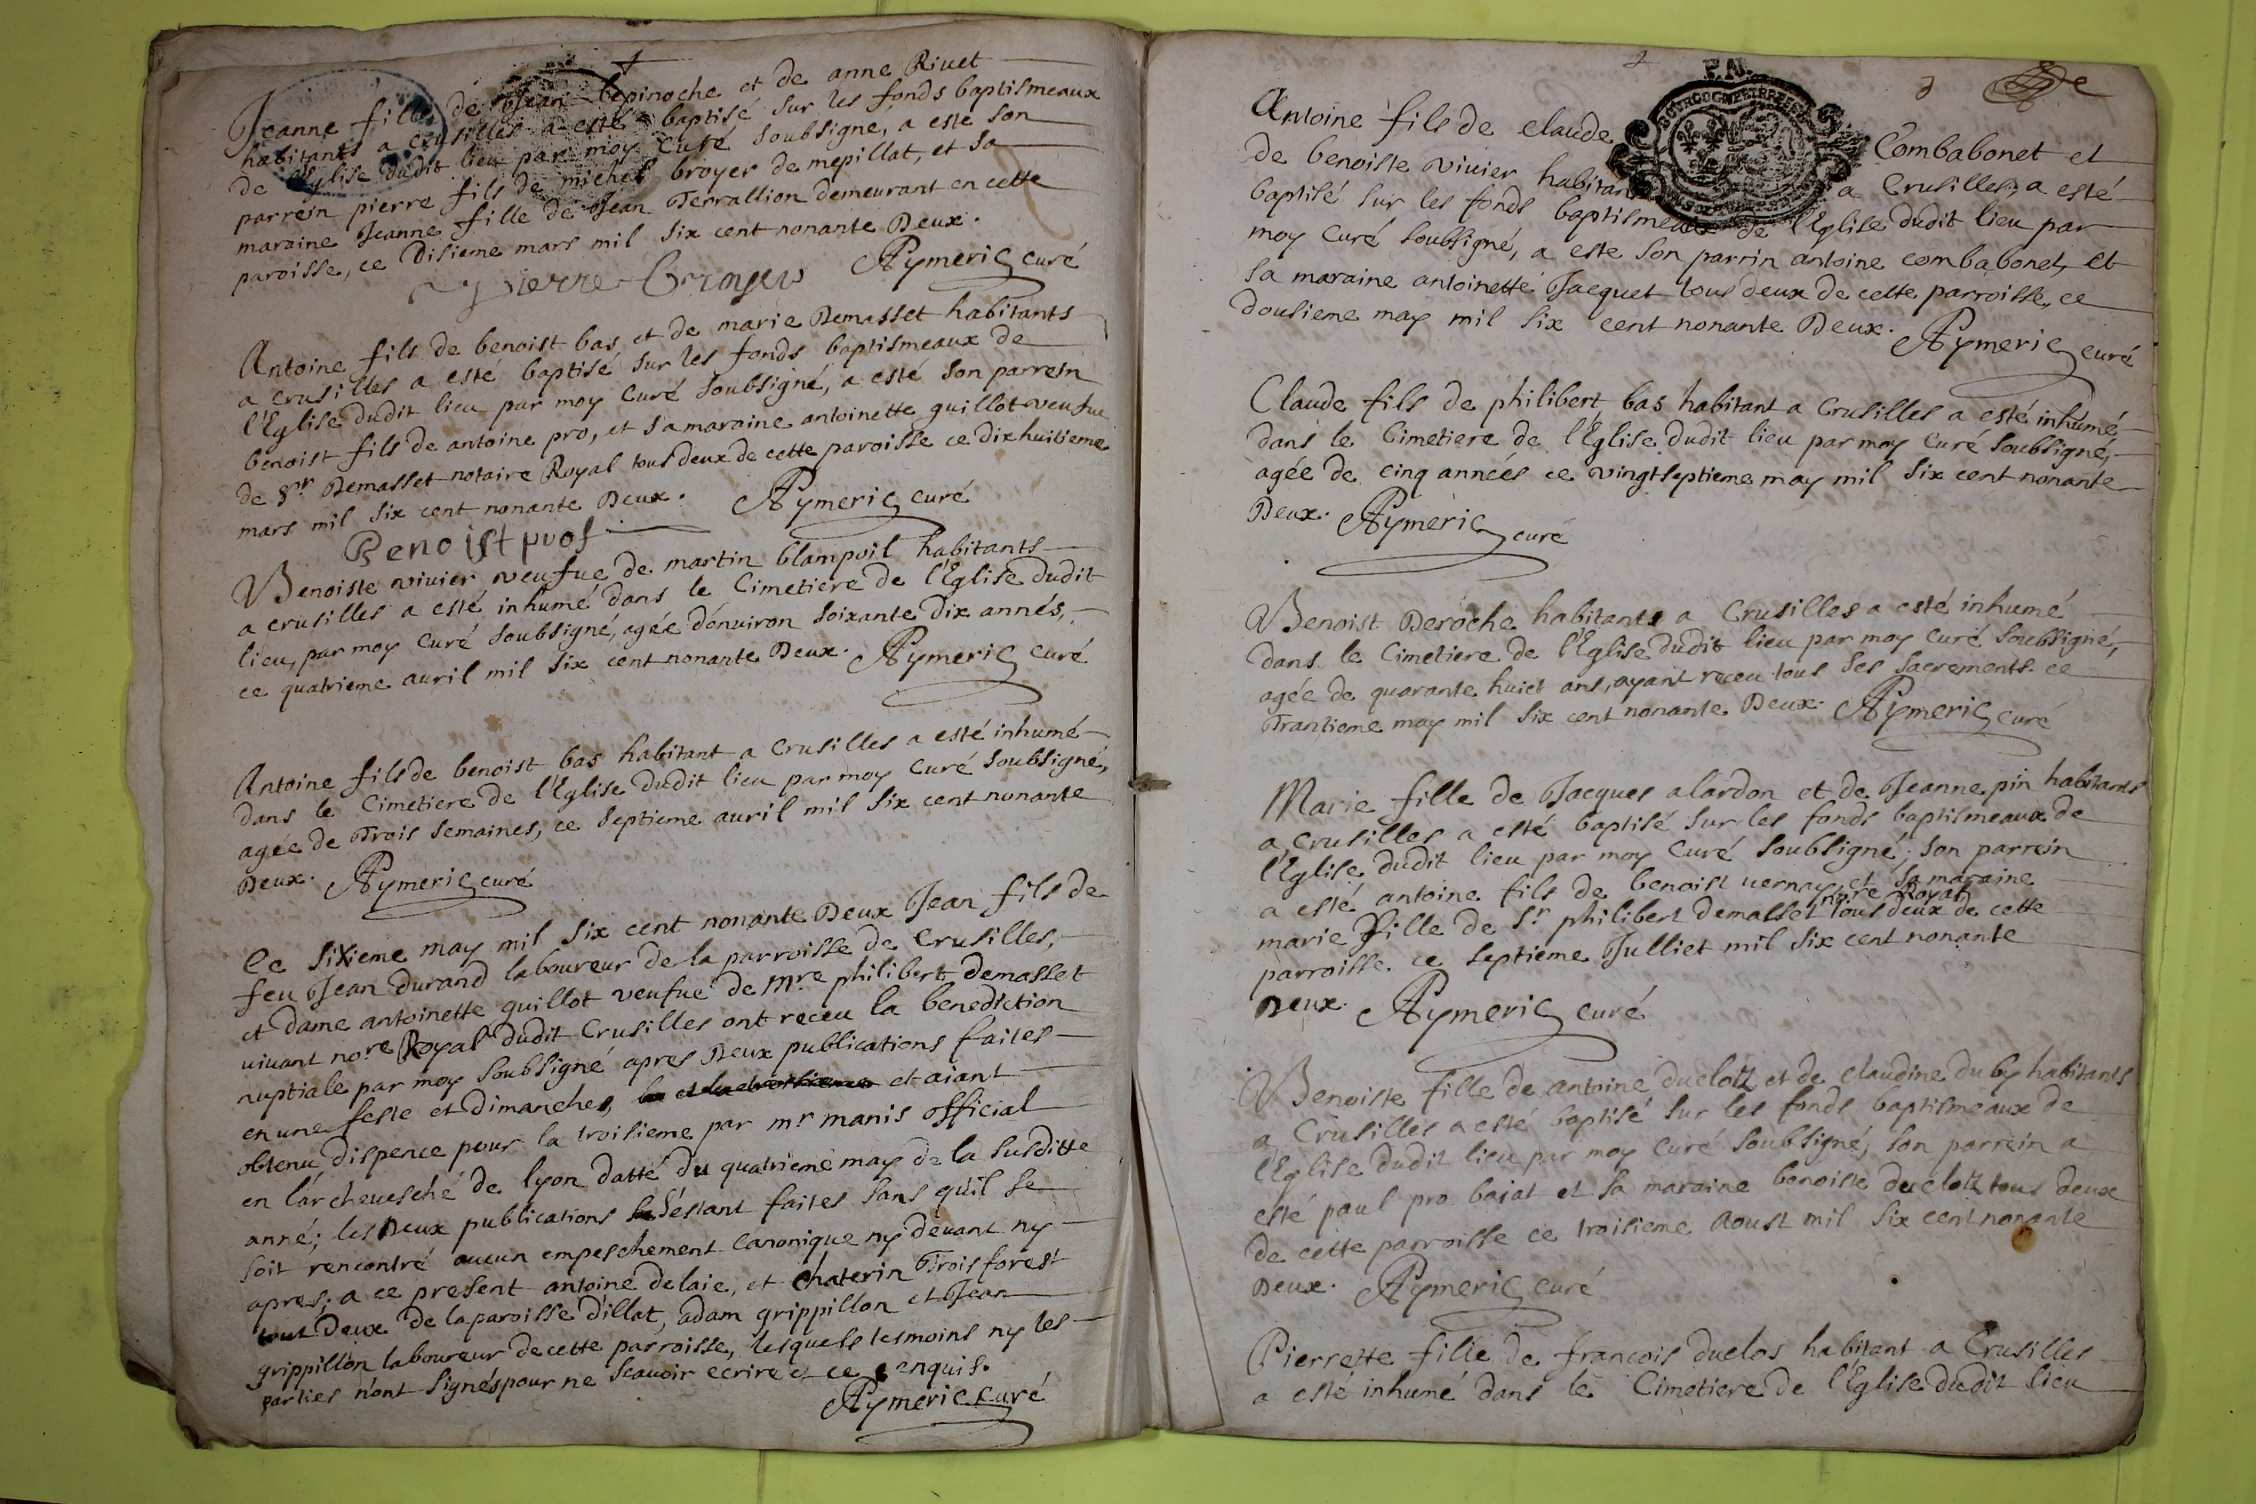 Jeanne fille de Jean lepinoche et de anne Rivet
habitants a crusilles a esté baptisé sur les fonds baptismeaux
de l'Eglise dudit lieu par moy Curé soubsigné, a esté son
parrein pierre fils de michel broyer de mepillat, et sa
maraine Jeanne fille de Jean Terrallion demeurant en cette
paroisse, ce disieme mars mil six cent nonante Deux.
Pierre Broyer Aymeric curé
Antoine fils de benoist bas et de marie Demasset habitants
a crusilles a esté baptisé sur les fonds baptismeaux de
l'Eglise dudit lieu par moy Curé soubsigné, a esté son parrein
benoist fils de antoine pro, et sa maraine antoinette guillot veufue
de Sr Demasset notaire Royal tous deux de cette paroisse ce dixhuitieme
mars mil six cent nonante Deux. Aymeric curé
Benoist pros
Benoiste vivier veufue de martin blampoil habitants
a crusilles a esté inhumé dans le Cimetiere de l'Eglise dudit
lieu, par moy Curé soubsigné, agée d'enuiron soixante dix annés,
ce quatrieme auril mil six cent nonante Deux. Aymeric curé
Antoine fils de benoist bas habitant a Crusilles a esté inhumé
dans le Cimetiere de l'Eglise dudit lieu par moy Curé soubsigné,
agée de Trois semaines, ce septieme auril mil six cent nonante
Deux. Aymeric curé
Ce sixieme may mil six cent nonante Deux Jean fils de
feu Jean durand laboureur de la parroisse de Crusilles,
et dame antoinette guillot veufue de Mre philibert demasset
uiuant nore Royal dudit Crusilles ont receu la benediction
nuptiale par moy soubsigné apres Deux publications faites
en une feste et dimanche, et aiant
obtenu dispence pour la troisieme par mr manis official
en l'archeuesché de lyon datté du quatrieme may de la susditte
anné; les Deux publications s'éstant faites sans qu'il se
soit rencontré aucun empeschement Canonique ny deuant ny
apres; a ce present antoine delaie, et Chaterin Troisforest
tout Deux de la paroisse d'illat, adam grippillon et Jean
grippillon laboureur de cette parroisse, lesquels tesmoins ny les
parties n'ont signés pour ne scauoir ecrire et ce enquis.
Aymeric curé
P.M.
3
Antoine fils de claude Combabonet et
de benoiste vivier habitants a Crusilles, a esté
baptisé sur les fonds baptismeaux de l'Eglise dudit lieu par
moy Curé soubsigné, a este son parrin antoine combabonet, et
sa maraine antoinette Jacquet tous deux de cette parroisse, ce
dousieme may mil six cent nonante Deux. Aymeric curé
Claude fils de philibert bas habitant a Crusilles a esté inhumé
dans le Cimetiere de l'Eglise dudit lieu par moy Curé soubsigné,
agée de cinq annéés ce vingtseptieme may mil six cent nonante
Deux. Aymeric curé
Benoist Deroche habitants a Crusilles a esté inhumé
dans le Cimetiere de l'Eglise dudit lieu par moy Curé soubsigné,
agée de quarante huict ans, ayant receu tous ses sacrements. ce
Trantieme may mil six cent nonante Deux. Aymeric curé
Marie fille de Jacques alardon et de Jeanne pin habitants
a Crusilles a esté baptisé sur les fonds baptismeaux de
l'Eglise dudit lieu par moy Curé soubsigné; son parrein
a esté antoine fils de benoist uernay, et sa maraine
marie fille de Sr philibert demasset nore Royal tous deux de cette
parroisse. ce septieme Julliet mil six cent nonante
Deux. Aymeric curé
Benoiste fille de antoine duclotz et de claudine duby habitants
a Crusilles a esté baptisé sur les fonds baptismeaux de
l'Eglise dudit lieu par moy Curé soubsigné, son parrein a
esté paul pro bajat et sa maraine benoiste duclotz tous deux
de cette parroisse ce troisieme Aoust mil six cent nonante
Deux. Aymeric curé
Pierrette fille de francois duclos habitant a Crusilles
a esté inhumé dans le Cimetiere de l'Eglise dudit lieu